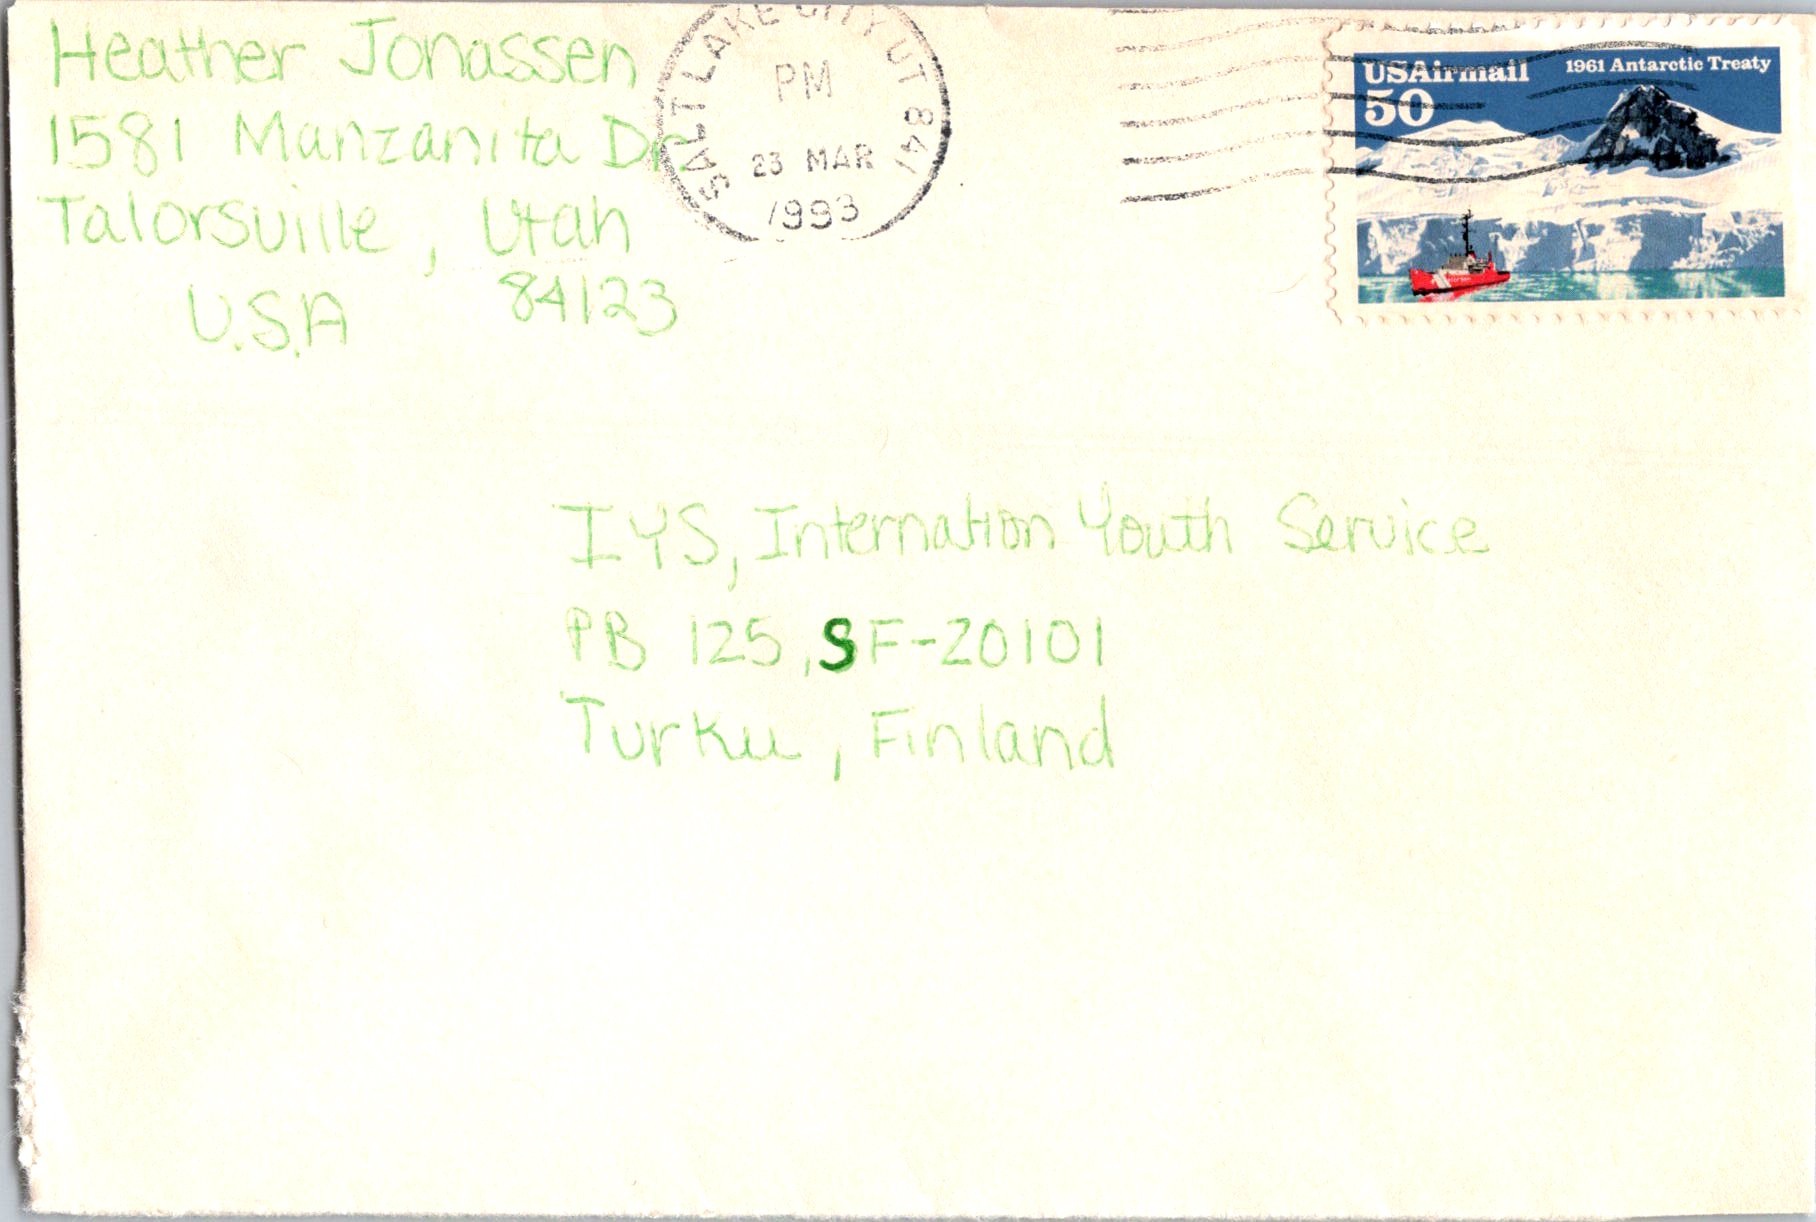 Heather Jonassen
1581 Manzanita Dr.
Talorsville, Utah
84123
U.S.A
SALT LAKE CITY UT 841
PM
23 MAR
1993
USAirmail
50
1961 Antarctic Treaty
IYS, Internation Youth Service
PB 125, SF-20101
Turku, Finland